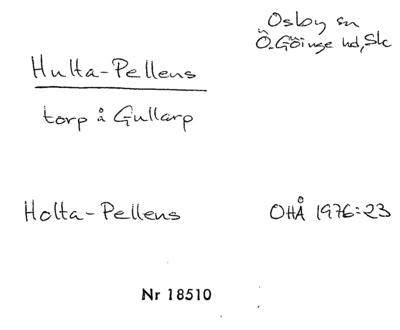 Osby sn
Ö. Göinge hd, Sk
Hulta-Pellens
torp å Gullarp
Holta-Pellens
OHÅ 1976:23
Nr 18510